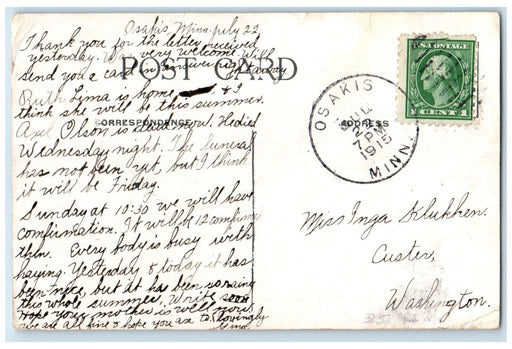 Osakis, Minn. July 22
Thank you for the letter received
yesterday. Was very welcome. Will
send you a card in answer right away
POST CARD
Ruth Lima is home &
think she will be this summer.
Axel Olson is dead now. He died
CORRESPONDENCE
ADDRESS
Wednesday night. The funeral
has not been yet, but I think
it will be Friday.
Sunday at 10:30 we will have
confirmation. It will be 12 confirmed
then. Every body is busy with
haying. Yesterday & today it has
been nice, but it has been so rainy
this whole summer. Write soon
Hope your mother is well now.
we are all fine & hope you are to. Lovingly
U.S. POSTAGE
1 CENT 1
OSAKIS
JUL
7 PM
1915
MINN.
Miss Inga Klukken.
Custer,
Washington.